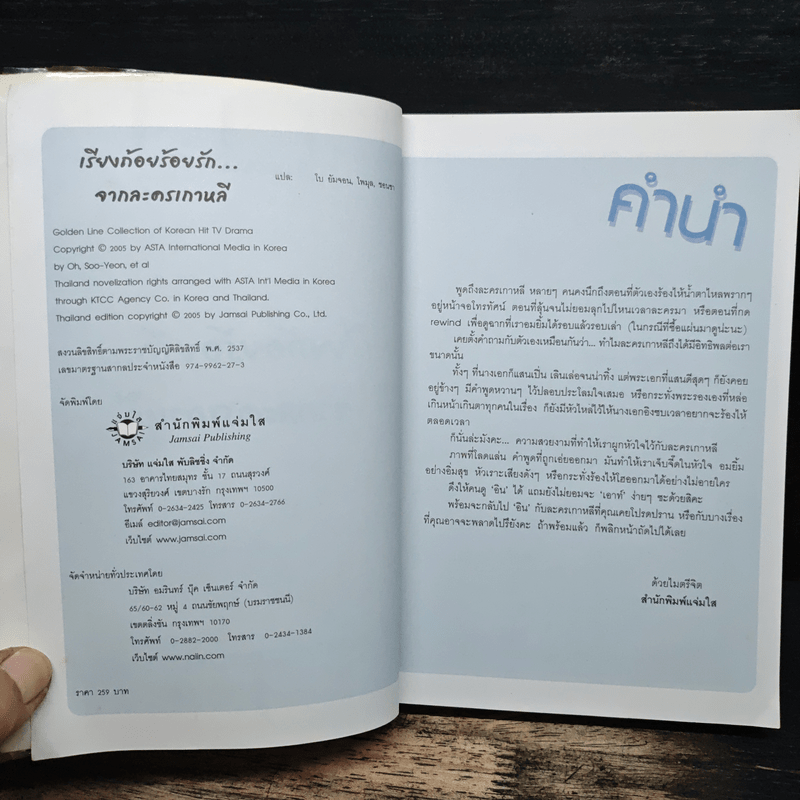 เรียงก้อยร้อยรัก...
จากละครเกาหลี
แปล: โบ ยัมจอน, ไพมุล, ซอนชา
Golden Line Collection of Korean Hit TV Drama
Copyright © 2005 by ASTA International Media in Korea
by Oh, Soo-Yeon, et al
Thailand novelization rights arranged with ASTA Int'l Media in Korea
through KTCC Agency Co. in Korea and Thailand.
Thailand edition copyright © 2005 by Jamsai Publishing Co., Ltd.
สงวนลิขสิทธิ์ตามพระราชบัญญัติลิขสิทธิ์ พ.ศ. 2537
เลขมาตรฐานสากลประจำหนังสือ 974-9962-27-3
จัดพิมพ์โดย
แจ่มใส
JAMSAI
สำนักพิมพ์แจ่มใส
Jamsai Publishing
บริษัท แจ่มใส พับลิชชิ่ง จำกัด
163 อาคารไทยสมุทร ชั้น 17 ถนนสุรวงศ์
แขวงสุริยวงศ์ เขตบางรัก กรุงเทพฯ 10500
โทรศัพท์ 0-2634-2425 โทรสาร 0-2634-2766
อีเมล์ editor@jamsai.com
เว็บไซต์ www.jamsai.com
จัดจำหน่ายทั่วประเทศโดย
บริษัท อมรินทร์ บุ๊ค เซ็นเตอร์ จำกัด
65/60-62 หมู่ 4 ถนนชัยพฤกษ์ (บรมราชชนนี)
เขตตลิ่งชัน กรุงเทพฯ 10170
โทรศัพท์ 0-2882-2000 โทรสาร 0-2434-1384
เว็บไซต์ www.naiin.com
ราคา 259 บาท
คำนำ
พูดถึงละครเกาหลี หลายๆ คนคงนึกถึงตอนที่ตัวเองร้องไห้น้ำตาไหลพรากๆ
อยู่หน้าจอโทรทัศน์ ตอนที่ลุ้นจนไม่ยอมลุกไปไหนเวลาละครมา หรือตอนที่กด
rewind เพื่อดูฉากที่เราอมยิ้มได้รอบแล้วรอบเล่า (ในกรณีที่ซื้อแผ่นมาดูน่ะนะ)
เคยตั้งคำถามกับตัวเองเหมือนกันว่า... ทำไมละครเกาหลีถึงได้มีอิทธิพลต่อเรา
ขนาดนั้น
ทั้งๆ ที่นางเอกก็แสนเปิ่น เลินเล่อจนน่าทึ้ง แต่พระเอกที่แสนดีสุดๆ ก็ยังคอย
อยู่ข้างๆ มีคำพูดหวานๆ ไว้ปลอบประโลมใจเสมอ หรือกระทั่งพระรองเองที่หล่อ
เกินหน้าเกินตาทุกคนในเรื่อง ก็ยังมีหัวไหล่ไว้ให้นางเอกอิงซบเวลาอยากจะร้องไห้
ตลอดเวลา
ก็นั่นล่ะมังคะ... ความสวยงามที่ทำให้เราผูกหัวใจไว้กับละครเกาหลี
ภาพที่โลดแล่น คำพูดที่ถูกเอ่ยออกมา มันทำให้เราเจ็บจี๊ดในหัวใจ อมยิ้ม
อย่างอิ่มสุข หัวเราะเสียงดังๆ หรือกระทั่งร้องไห้โฮออกมาได้อย่างไม่อายใคร
ดึงให้คนดู 'อิน' ได้ แถมยังไม่ยอมจะ 'เอาท์' ง่ายๆ ซะด้วยสิคะ
พร้อมจะกลับไป 'อิน' กับละครเกาหลีที่คุณเคยโปรดปราน หรือกับบางเรื่อง
ที่คุณอาจจะพลาดไปรึยังคะ ถ้าพร้อมแล้ว ก็พลิกหน้าถัดไปได้เลย
ด้วยไมตรีจิต
สำนักพิมพ์แจ่มใส